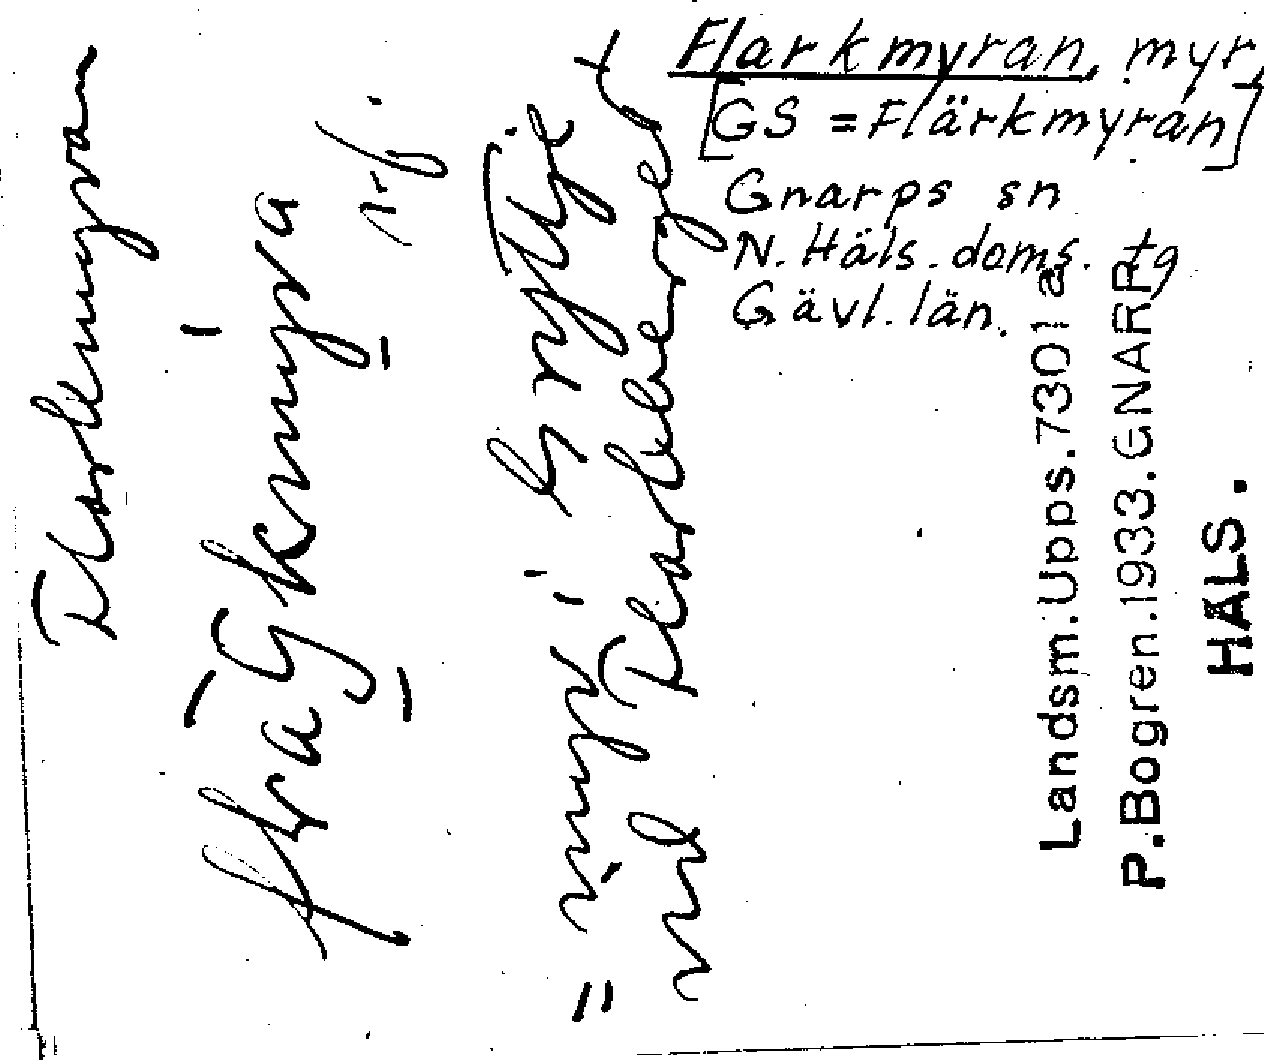 Flarkmyran, myr,
[GS = Flärkmyran]
Gnarps sn
N. Häls. doms. tg
Gävl. län.
Flarkmyran
= myr i
vid Flarkberget
Landsm. Upps. 7301 a
P. Bogren. 1933. GNARP
HÄLS.